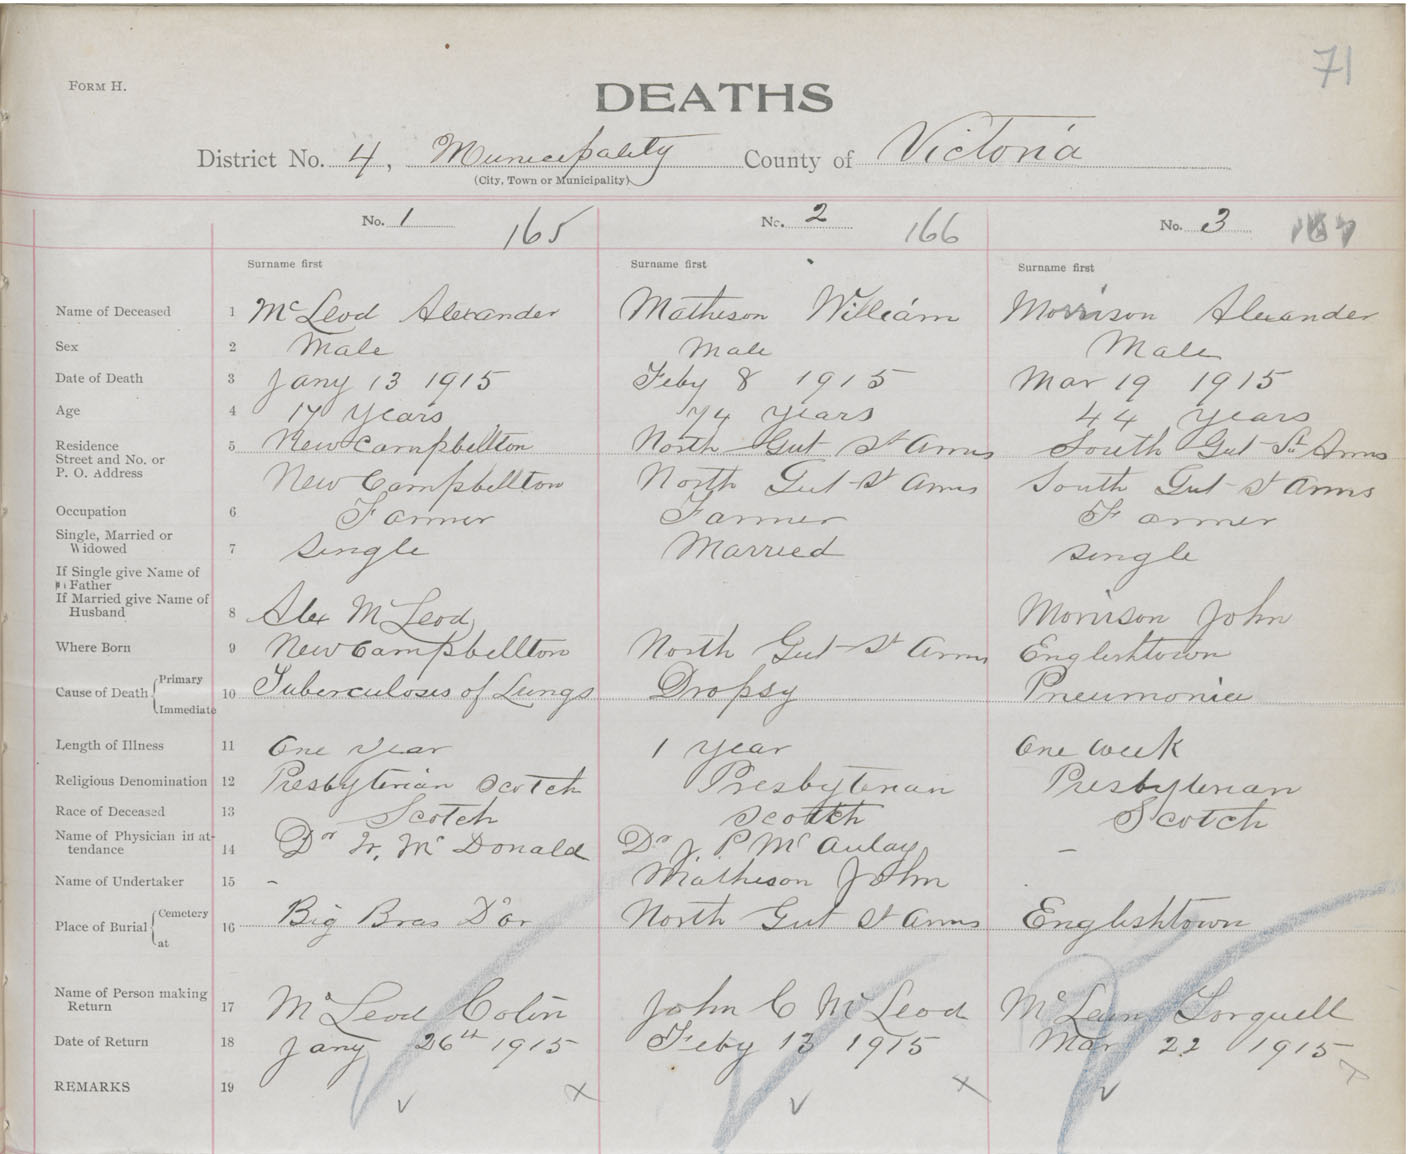 71
FORM H.
DEATHS
District No. 4, Municipality County of Victoria
(City, Town or Municipality)
No. 1 165 No. 2 166 No. 3
Surname first Surname first Surname first
Name of Deceased 1 McLeod Alexander Matheson William Morrison Alexander
Sex 2 Male Male Male
Date of Death 3 Jany 13 1915 Feby 8 1915 Mar 19 1915
Age 4 17 Years 74 years 44 Years
Residence 5 New Campbellton North Gut St Anns South Gut St Anns
Street and No. or
P. O. Address New Campbellton North Gut St Anns South Gut St Anns
Occupation 6 Farmer Farmer Farmer
Single, Married or
Widowed 7 single Married single
If Single give Name of
Father
If Married give Name of
Husband 8 Alex McLeod Morrison John
Where Born 9 New Campbellton North Gut St Anns Englishtown
Cause of Death { Primary
10 Tuberculoses of Lungs Dropsy Pneumonia
Immediate
Length of Illness 11 One Year 1 year One week
Religious Denomination 12 Presbyterian Scotch Presbyterian Presbyterian
Race of Deceased 13 Scotch Scotch Scotch
Name of Physician in at-
tendance 14 Dr Mc Donald Dr J. P McAulay –
Name of Undertaker 15 – Matheson John
Place of Burial { Cemetery
16 Big Bras D'or North Gut St Anns Englishtown
at
Name of Person making
Return 17 McLeod Colin John C McLeod McLean Torquell
Date of Return 18 Jany 26th 1915 Feby 13 1915 Mar 22 1915
REMARKS 19